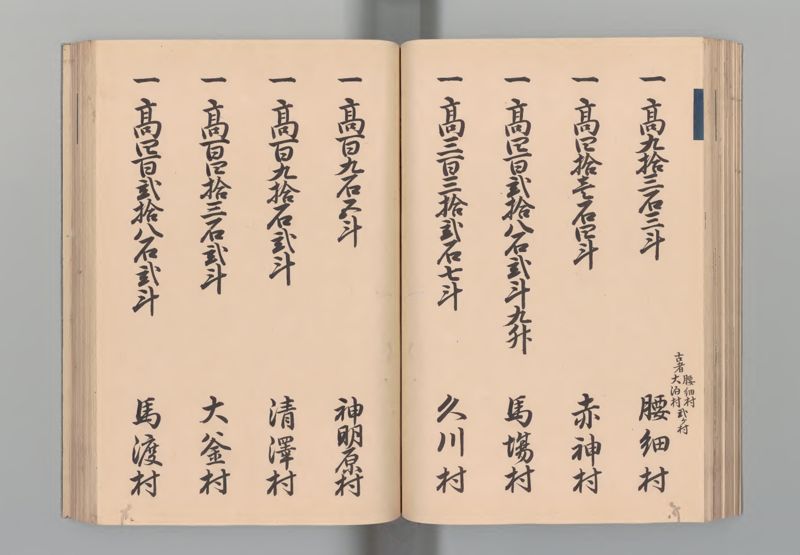 一 高九拾三石三斗
古者 腰細村
大泊村 弐ケ村
腰細村
一 高四拾壱石四斗 赤神村
一 高四百弐拾八石弐斗九升 馬場村
一 高三百三拾弐石七斗 久川村
一 高百九石六斗 神明原村
一 高百九拾石弐斗 清澤村
一 高百四拾三石弐斗 大釜村
一 高四百弐拾八石弐斗 馬渡村